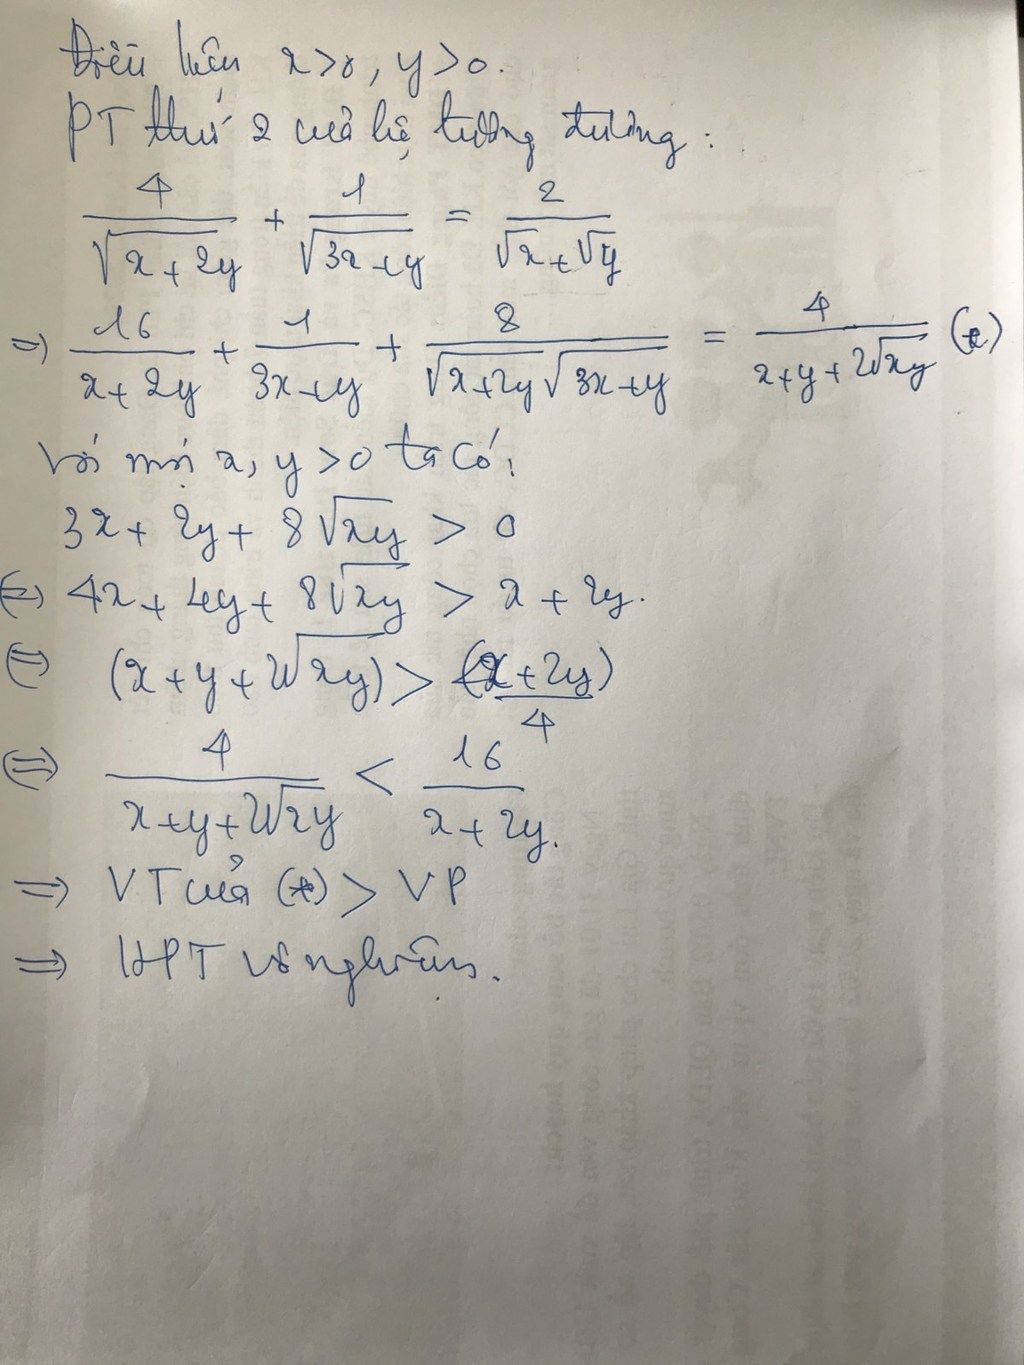 Điều kiện x>0, y>0.
PT thứ 2 của hệ tương đương:
4/√(x+2y) + 1/√(3x+y) = 2/(√x+√y)
=> 16/(x+2y) + 1/(3x+y) + 8/(√(x+2y)√(3x+y)) = 4/(x+y+2√xy) (*)
Với mọi x, y>0 ta có:
3x+2y+8√xy > 0
<=> 4x+4y+8√xy > x+2y.
<=> (x+y+2√xy) > (x+2y)/4
<=> 4/(x+y+2√xy) < 16/(x+2y).
=> VT của (*) > VP
=> HPT vô nghiệm.